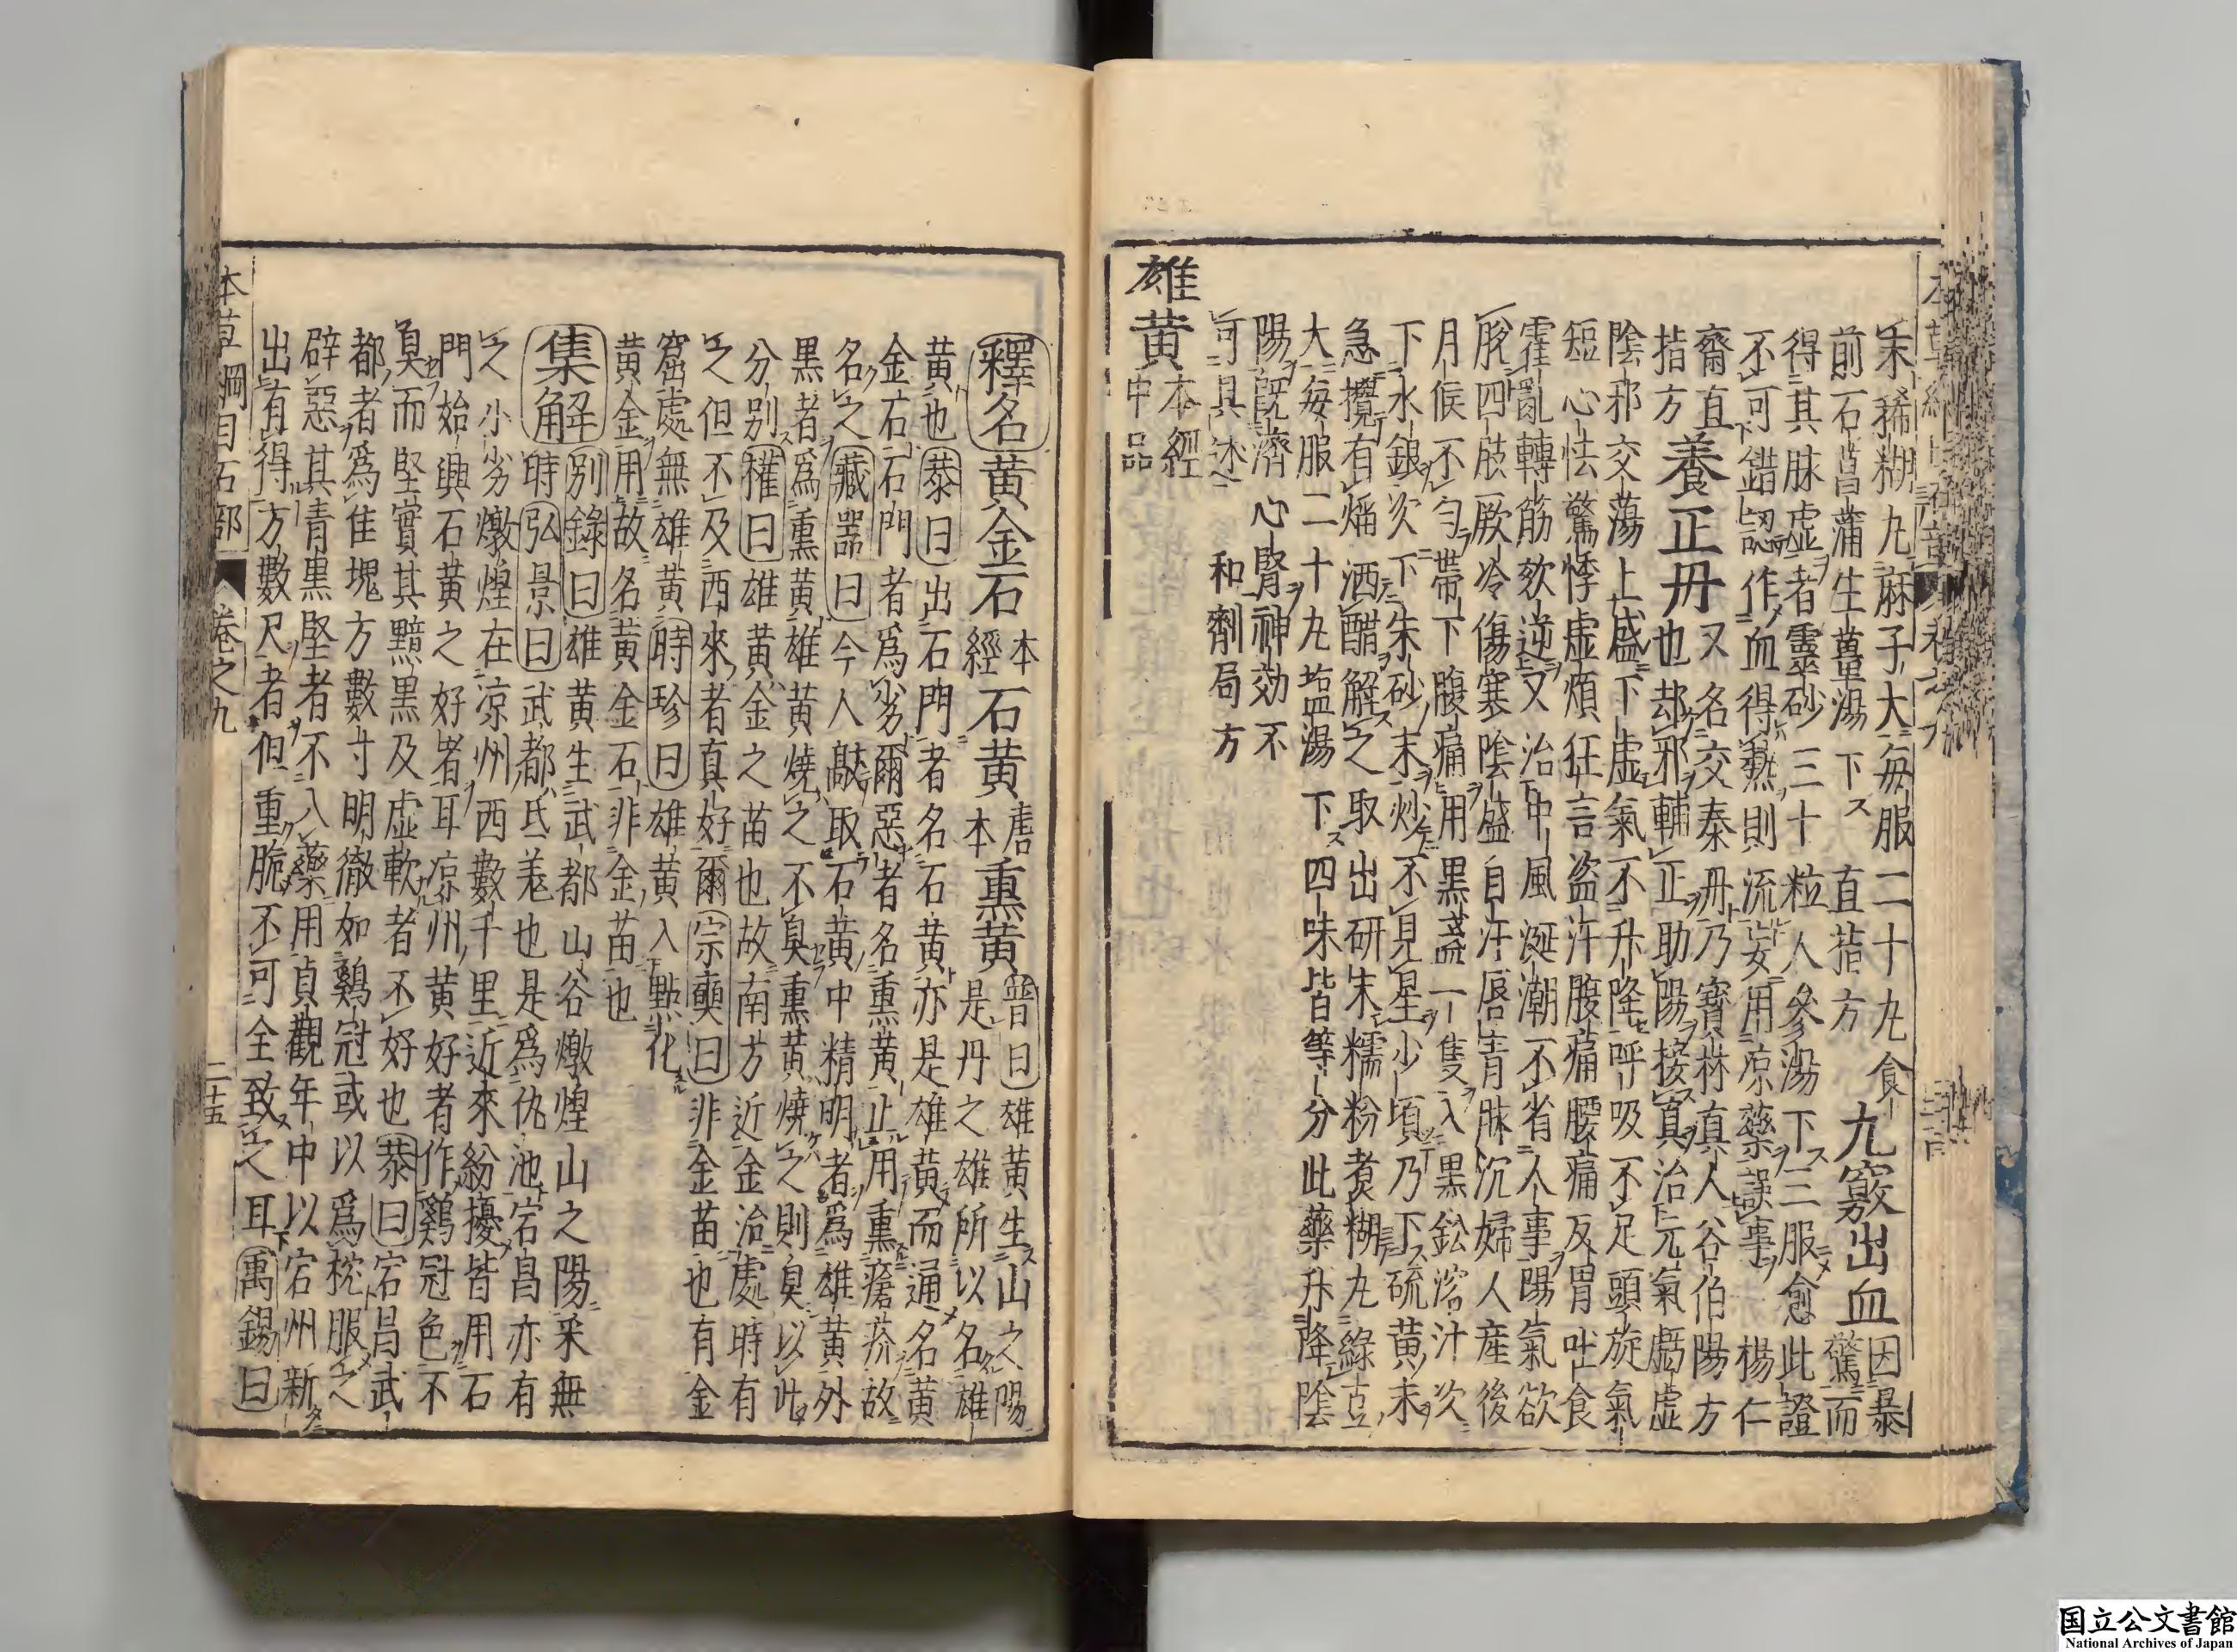 末稀糊丸麻子大每服二十丸食
前石菖蒲生薑湯下 直指方 九竅出血 因暴驚而
得其脉虛者靈砂三十粒人參湯下三服愈此證
不可錯認作血得熱則流妄用凉藥誤事 楊仁
齋直指方 養正丹 又名交泰丹乃寶林真人谷伯陽方
也却邪輔正助陽接真治元氣虧虛
陰邪交蕩上盛下虛氣不升降呼吸不足頭旋氣
短心怯驚悸虛煩狂言盗汗腹痛腰痛反胃吐食
霍亂轉筋欬逆又治中風涎潮不省人事陽氣欲
脫四肢厥冷傷寒陰盛自汗唇青脉沉婦人產後
月候不勻帶下腹痛用黑盞一隻入黑鈆溶汁次
下水銀次下朱砂末炒不見星少頃乃下硫黄末
急攪有熖洒醋解之取出研末糯粉煑糊丸綠豆
大每服二十丸塩湯下四味皆等分此藥升降陰
陽旣濟心腎神効不
可具述 和劑局方
雄黄 本經中品
釋名 黄金石 本經 石黄 唐本 熏黄 普曰雄黄生山之陽
是丹之雄所以名雄
黄也 恭曰 出石門者名石黄亦是雄黄而通名黄
金石石門者爲劣爾惡者名熏黄止用熏瘡疥故
名之 藏器曰 今人敲取石黄中精明者爲雄黄外
黑者爲熏黄雄黄燒之不臭熏黄燒之則臭以此
分别 權曰 雄黄金之苗也故南方近金冶處時有
之但不及西來者真好爾 宗奭曰 非金苗也有金
窟處無雄黄 時珍曰 雄黄入點化
黄金用故名黄金石非金苗也
集解 别錄曰 雄黄生武都山谷燉煌山之陽采無
時 弘景曰 武都氐羌也是爲仇池宕昌亦有
之小劣燉煌在凉州西數千里近來紛擾皆用石
門始興石黄之好者耳凉州黄好者作鷄冠色不
臭而堅實其黯黑及虛軟者不好也 恭曰 宕昌武
都者爲佳塊方數寸明徹如鷄冠或以爲枕服之
辟惡其青黑堅者不入藥用貞觀年中以宕州新
出有得方數尺者但重脆不可全致之耳 禹錫曰
本草綱目石部 卷之九 二十五
国立公文書館
National Archives of Japan